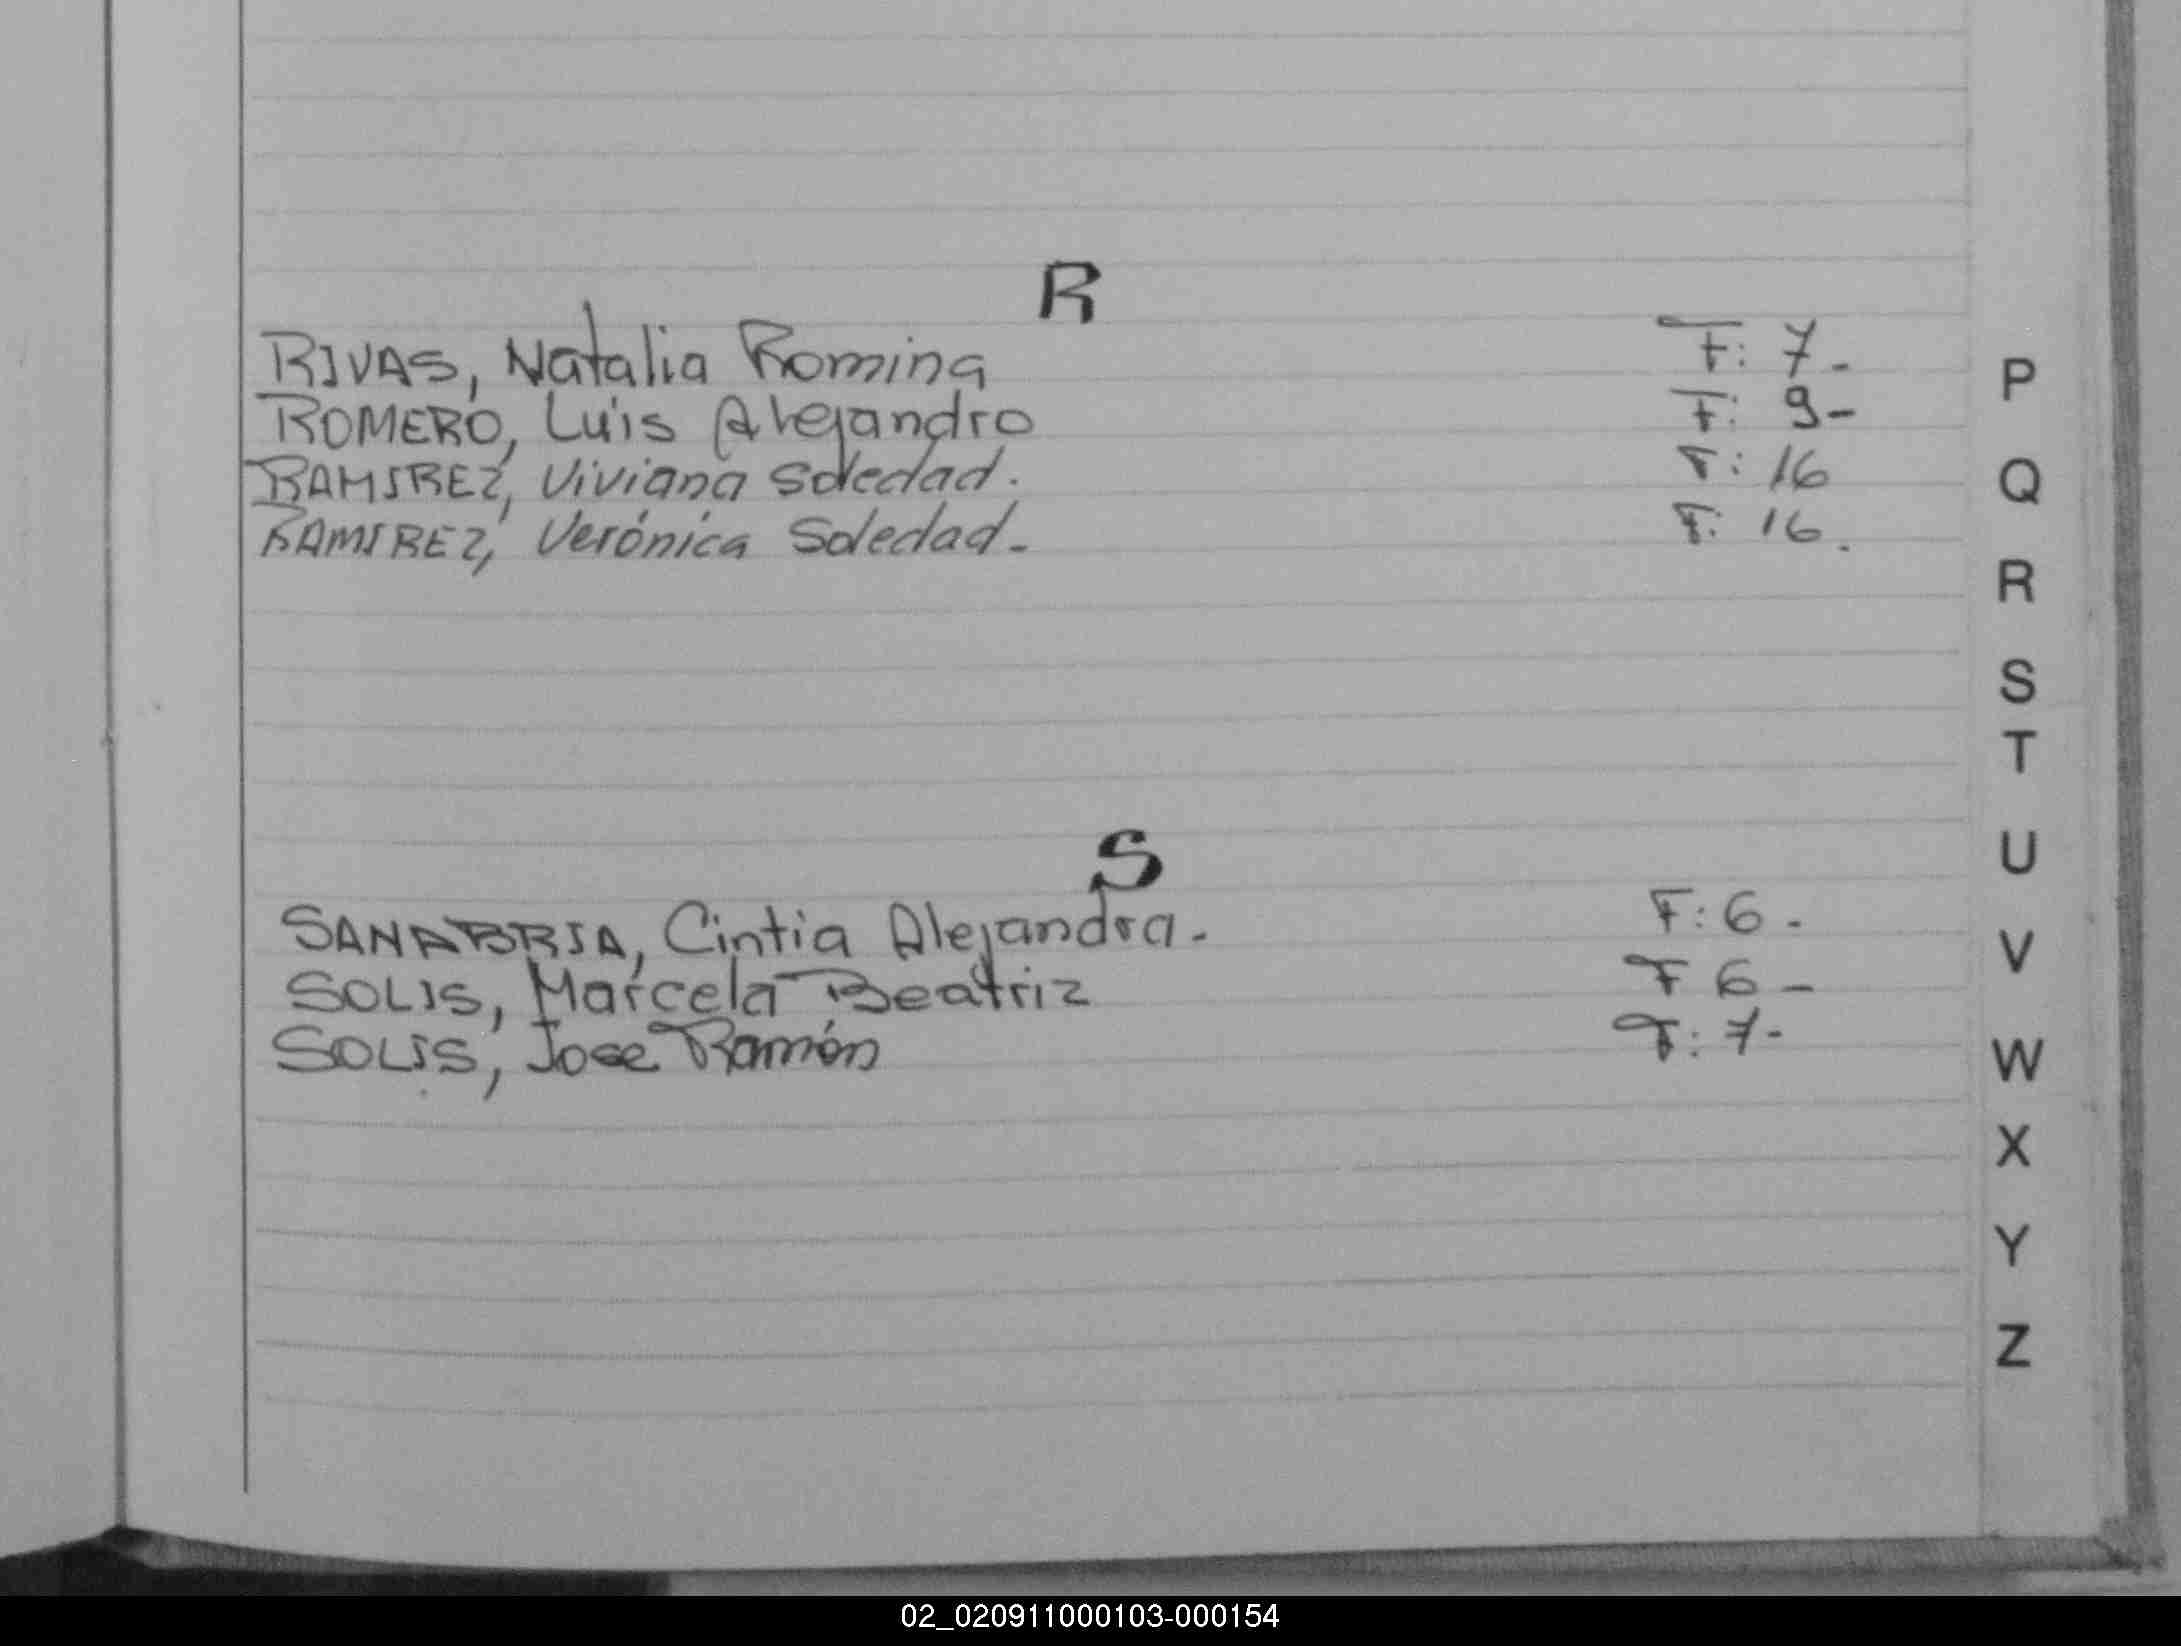 R
RIVAS, Natalia Romina F: 7-
ROMERO, Luis Alejandro F: 9-
RAMIREZ, Viviana Soledad. F: 16
RAMIREZ, Verónica Soledad- F: 16.
S
SANABRIA, Cintia Alejandra- F: 6-
SOLIS, Marcela Beatriz F 6-
SOLIS, Jose Ramón F: 7-
P
Q
R
S
T
U
V
W
X
Y
Z
02_020911000103-000154